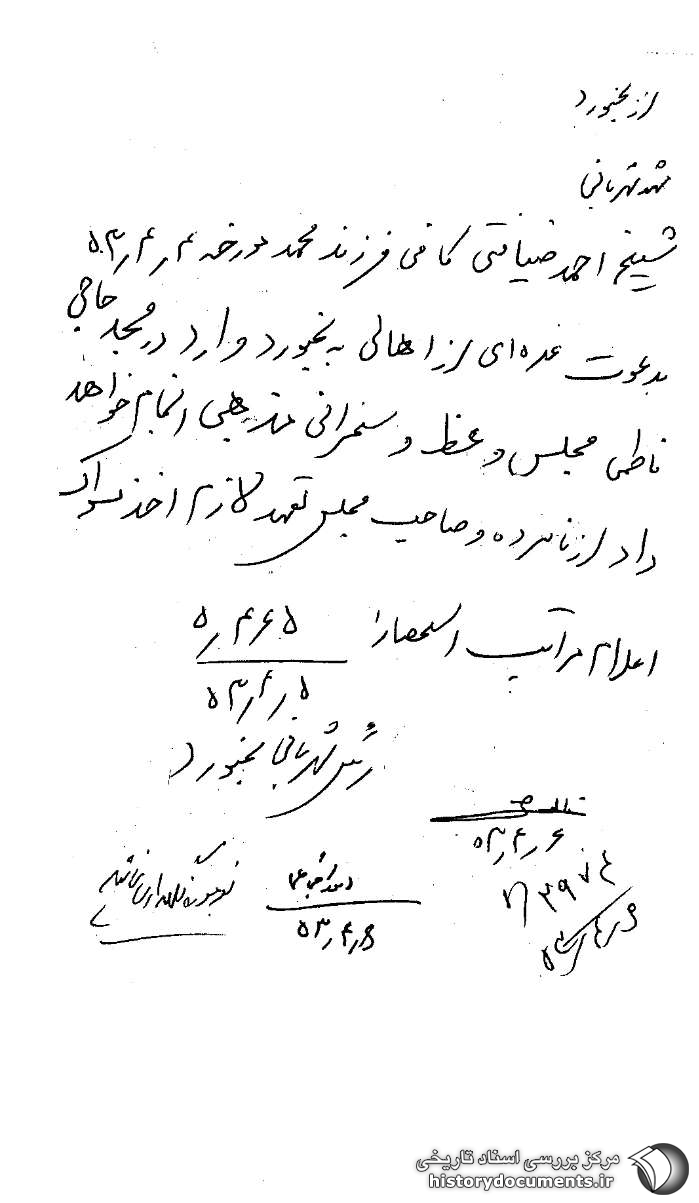 از بجنورد
مشهد شهربانی
شیخ احمد ضیافتی کافی فرزند محمد مورخه ۵۳٫۴٫۴
بدعوت عده‌ای از اهالی به بجنورد وارد در مسجد حاجی
ناظمی مجلس وعظ و سخنرانی مذهبی انجام خواهد
داد از نامبرده و صاحب مجلس تعهد لازم اخذ ساواک
اعلام مراتب استحضارا ۵٫۴۶۵
۵۳٫۴٫۵
رئیس شهربانی بجنورد
۵۳٫۴٫۶
۵۳٫۴٫۵
مرکز بررسی اسناد تاریخی
historydocuments.ir